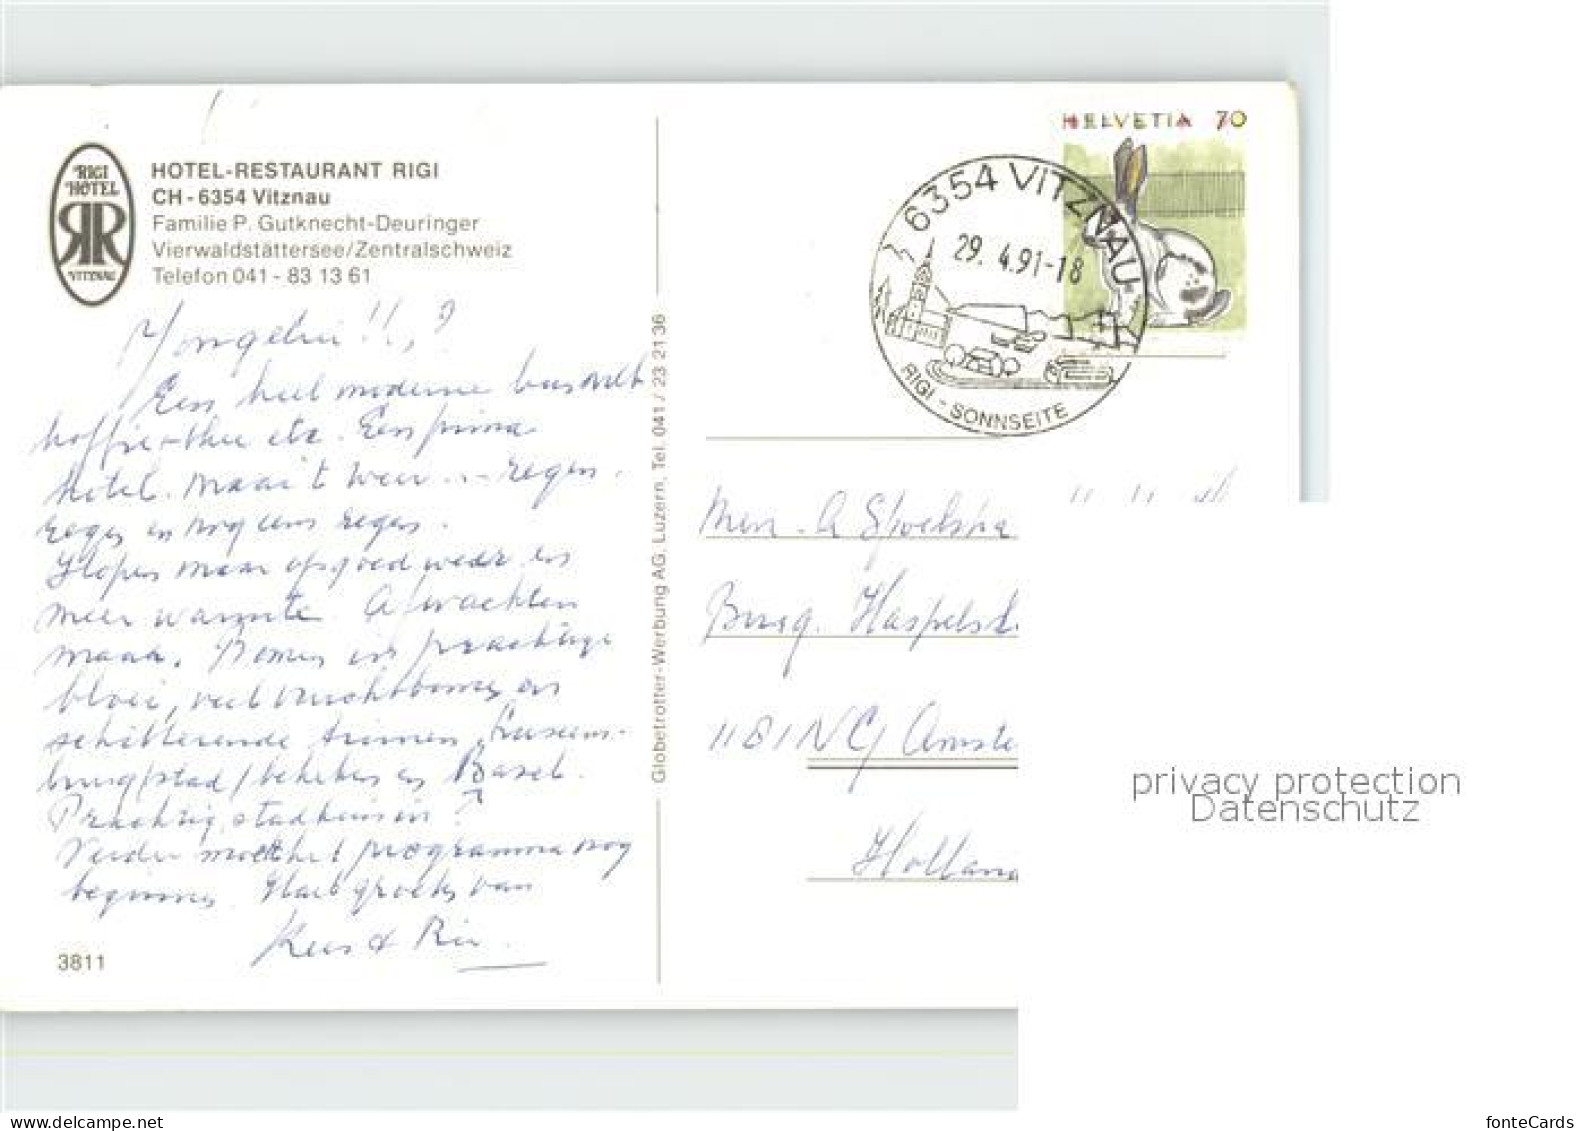 RIGI
HOTEL
RR
VITZNAU
HOTEL-RESTAURANT RIGI
CH - 6354 Vitznau
Familie P. Gutknecht-Deuringer
Vierwaldstättersee/Zentralschweiz
Telefon 041 - 83 13 61
Een heel moderne bus met
koffie-thee etc. Een prima
hotel. Maar 't weer ... regen.
regen en nog eens regen.
Hopen maar op goed weer en
meer warmte. Afwachten
maar. Bomen in prachtige
bloei, veel vruchtbomen en
schitterende
burg/stad/bekeken en Basel.
Prachtig stadhuis in ?
Verder moet het programma nog
beginnen. Hart. groeten van
Kees & Rie.
3811
Globetrotter-Werbung AG, Luzern, Tel. 041 / 23 21 36
HELVETIA 70
6354 VITZNAU
29. 4.91-18
RIGI - SONNSEITE
A Spoelstra
Burg. Haspelsl.
1181 NC Amste
Holland
privacy protection
Datenschutz
www.delcampe.net
fonteCards